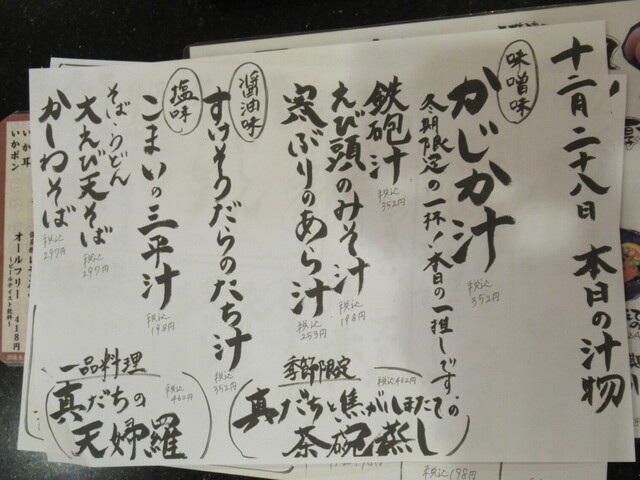 十二月二十八日 本日の汁物
味噌味
かじか汁
税込
352円
冬期限定の一杯!本日の一推しです。
鉄砲汁
税込
352円
えび頭のみそ汁
税込
198円
寒ぶりのあら汁
税込
253円
醤油味
すけそうだらのたち汁
税込
352円
塩味
こまいの三平汁
税込
198円
そば・うどん
大えび天そば
税込
297円
かしわそば
税込
297円
季節限定
税込462円
真だちと焦がしほたての
茶碗蒸し
一品料理
税込
462円
真だちの
天婦羅
いか耳
いかポン
オールフリー 418円
~ビールテイスト飲料~
税込198円